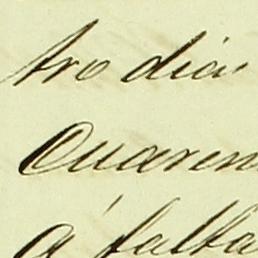 tro dias
Quaren
á falta